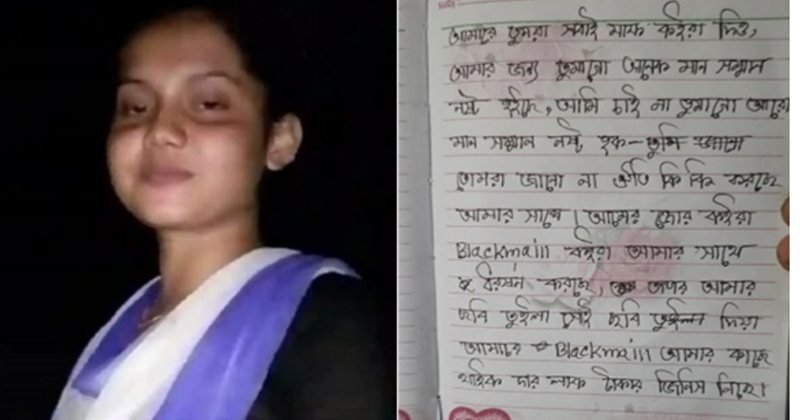 আমারে তুমরা সবাই মাফ কইরা দিও,
আমার জন্য তুমাগো অনেক মান সম্মান
নষ্ট হইছে, আমি চাই না তুমাগো আরো
মান সম্মান নষ্ট হক- তুমি
তোমরা জানো না কি কি করছে
আমার সাথে। জোর কইরা
Blackmaill কইরা আমার সাথে
করছে, তারপর আমার
ছবি তুইলা সেই ছবি দিয়া
আমারে Blackmaill আমার কাছে
থাইক চার লাক টাকার জিনিস নিছে।